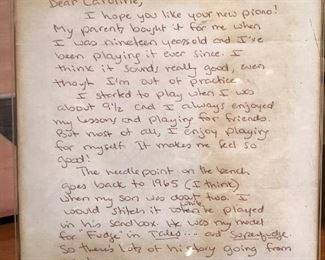 Dear Caroline,
I hope you like your new piano!
My parents bought it for me when
I was nineteen years old and I've
been playing it ever since. I
think it sounds really good, even
though I'm out of practice.
I started to play when I was
about 9½ and I always enjoyed
my lessons and playing for friends.
But most of all, I enjoy playing
for myself. It makes me feel so
good!
The needlepoint on the bench
goes back to 1965 (I think)
when my son was about two. I
would stitch it while he played
in his sandbox. He was my model
for Fudge in Tales... and Superfudge.
So there's lots of history going from